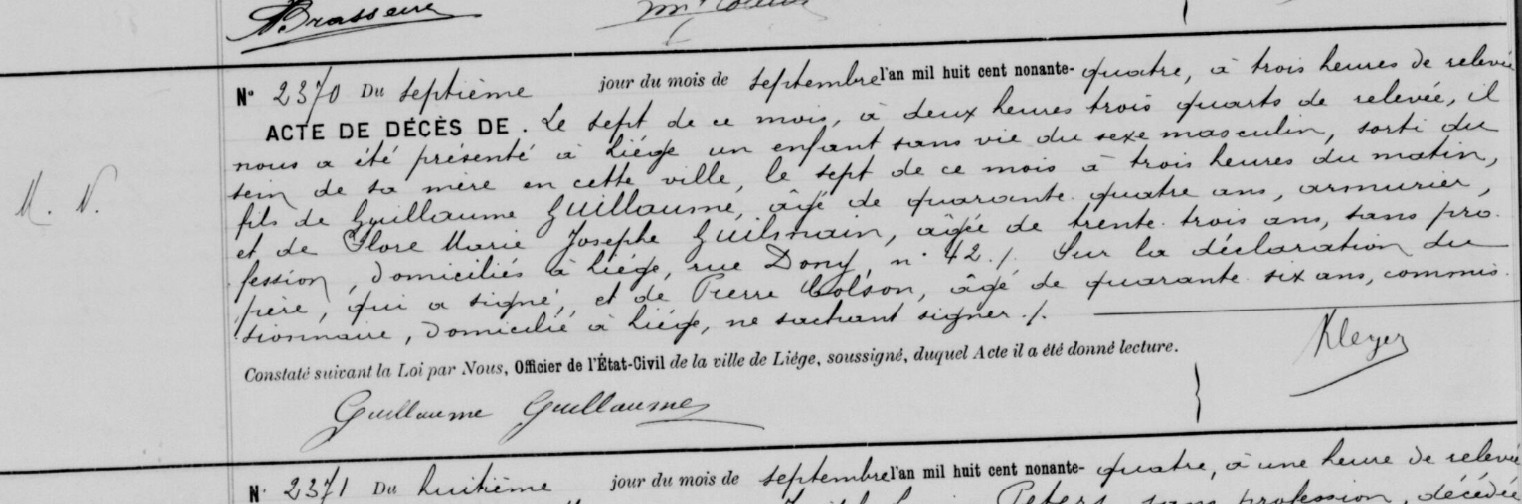 Brasseur
N° 2370 Du septième jour du mois de septembre l'an mil huit cent nonante-quatre, à trois heures de relevée
ACTE DE DÉCÈS DE . Le sept de ce mois, à deux heures trois quarts de relevée, il
nous a été présenté à Liége un enfant sans vie du sexe masculin, sorti du
sein de sa mère en cette ville, le sept de ce mois à trois heures du matin,
fils de Guillaume Guillaume, âgé de quarante quatre ans, armurier,
M. N.
et de Flore Marie Josephe Guilmain, âgée de trente trois ans, sans pro-
fession, domiciliés à Liége, rue Dony, n° 42 ./. Sur la déclaration du
père, qui a signé, et de Pierre Colson, âgé de quarante six ans, commis-
sionnaire, domicilié à Liége, ne sachant signer ./.
Constaté suivant la Loi par Nous, Officier de l'État-Civil de la ville de Liége, soussigné, duquel Acte il a été donné lecture.
Kleyer
Guillaume Guillaume
N° 2371 Du huitième jour du mois de septembre l'an mil huit cent nonante-quatre, à une heure de relevée
Peters, sans profession, décédée